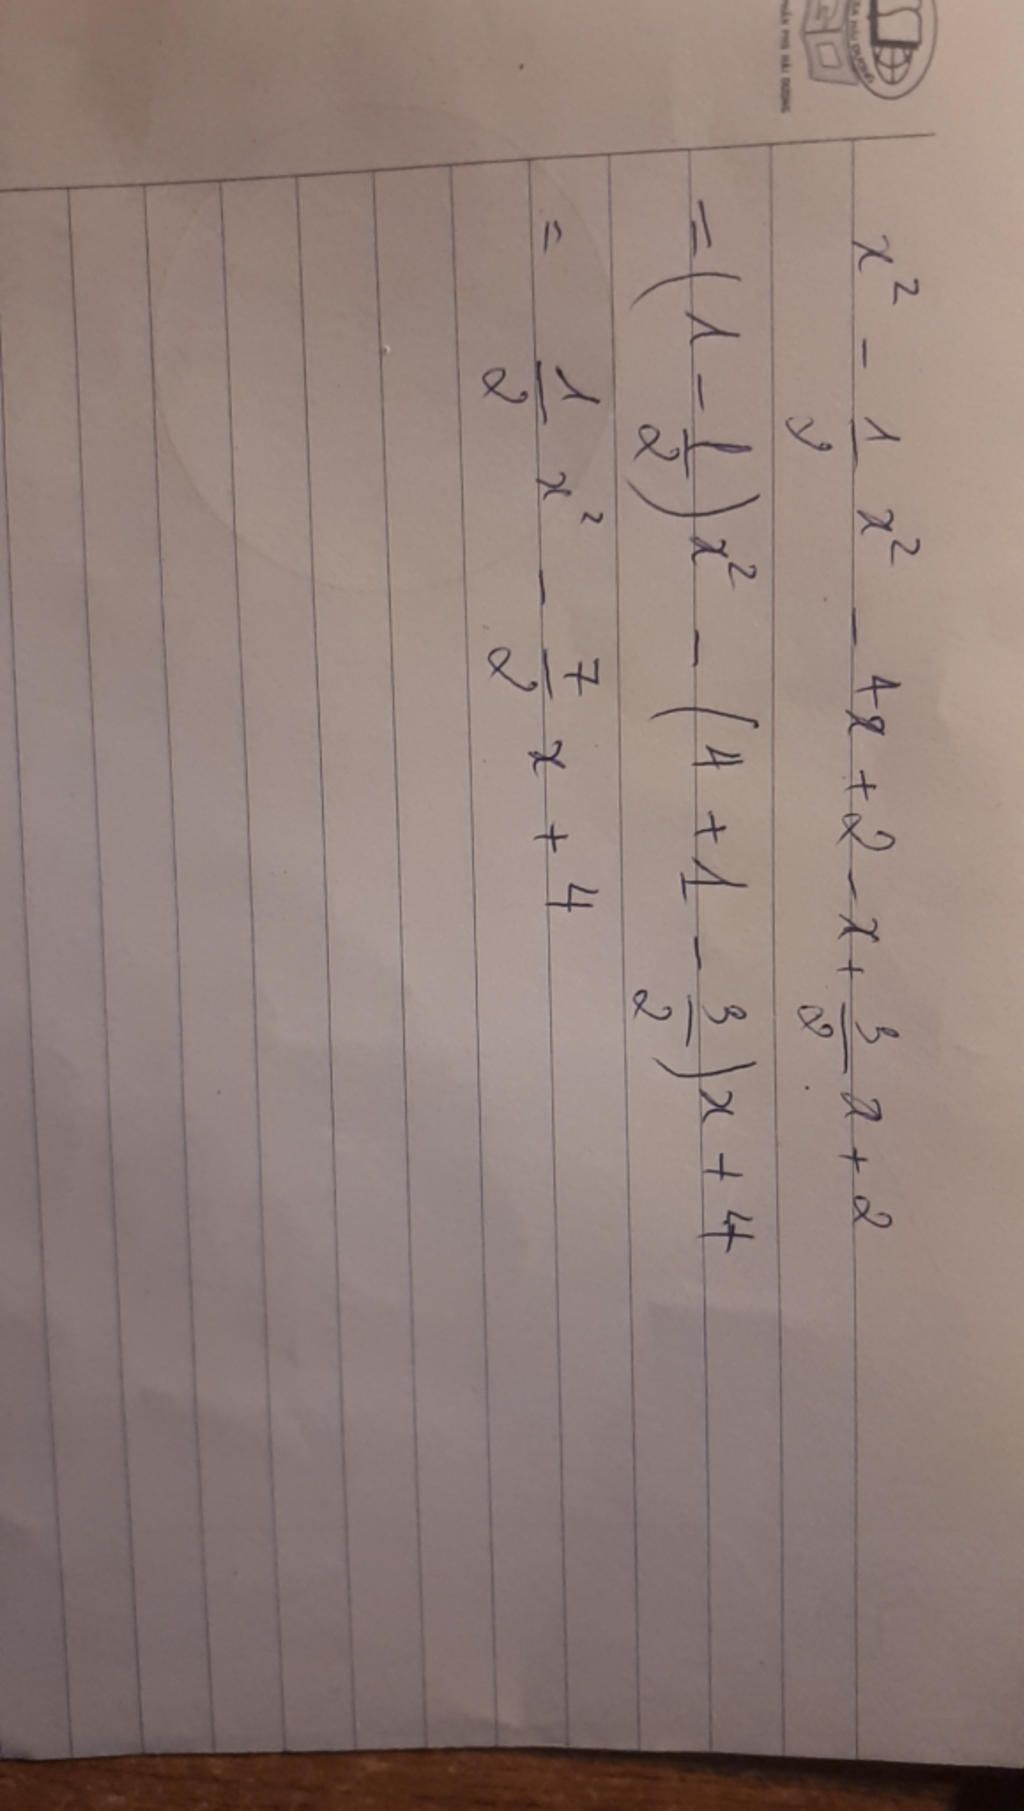 x² - 1/2 x² - 4x + 2 - x + 3/2 x + 2
= (1 - 1/2) x² - (4 + 1 - 3/2) x + 4
= 1/2 x² - 7/2 x + 4